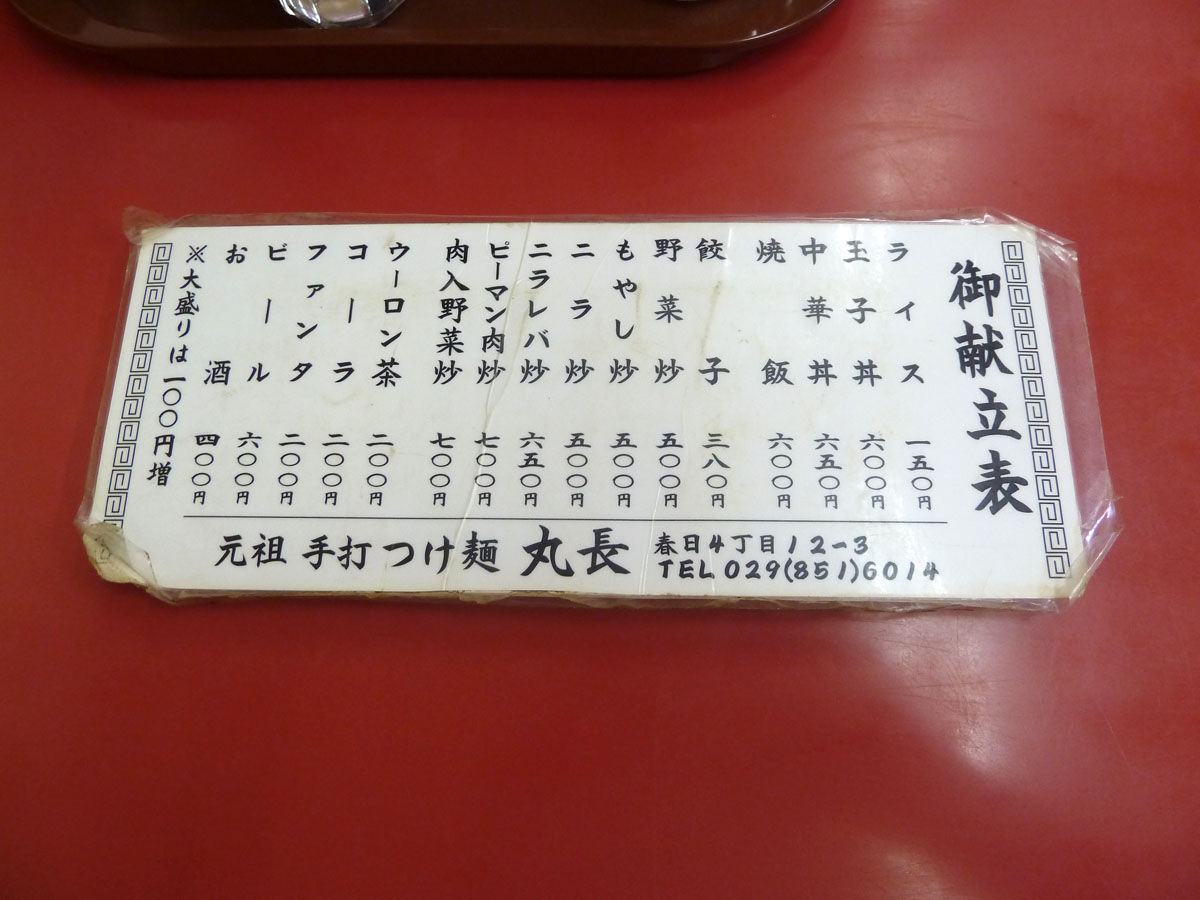 御献立表
ライス 一五〇円
玉子丼 六〇〇円
中華丼 六五〇円
焼飯 六〇〇円
餃子 三八〇円
野菜炒 五〇〇円
もやし炒 五〇〇円
ニラ炒 五〇〇円
ニラレバ炒 六五〇円
ピーマン肉炒 七〇〇円
肉入野菜炒 七〇〇円
ウーロン茶 二〇〇円
コーラ 二〇〇円
ファンタ 二〇〇円
ビール 六〇〇円
お酒 四〇〇円
※大盛りは一〇〇円増
元祖 手打 つけ麺 丸長
春日4丁目12-3
TEL 029(851)6014